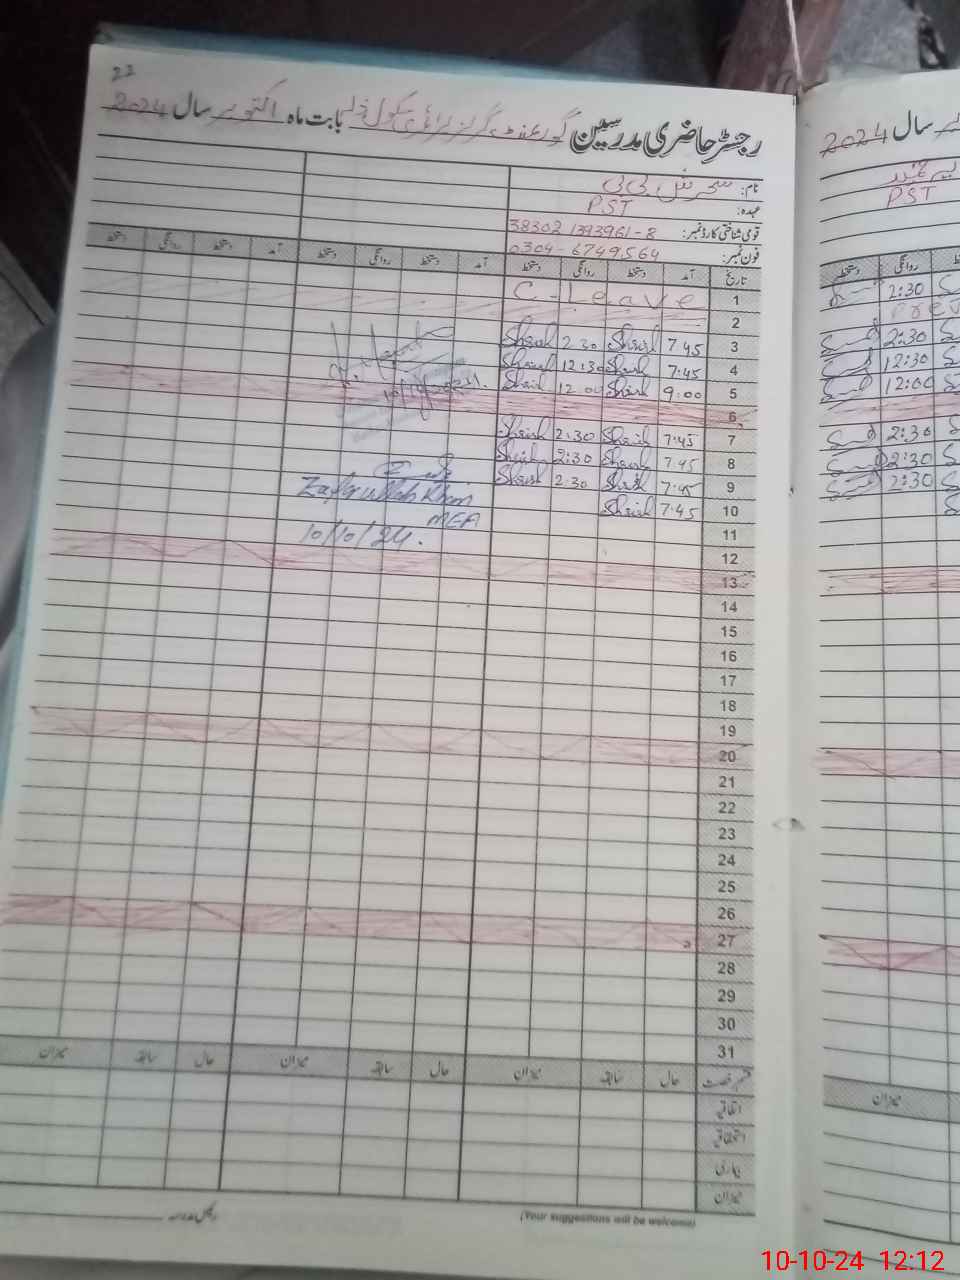 22
رجسٹر حاضری مدرسین گورنمنٹ گرلز پرائمری سکول بابت ماہ اکتوبر سال 2024
نام: سحرش بی بی
عہدہ: PST
قومی شناختی کارڈ نمبر: 38302 1393961-8
فون نمبر: 0304-6749564
تاریخ آمد دستخط روانگی دستخط آمد دستخط روانگی دستخط آمد دستخط روانگی دستخط
1 C-Leave
2
3 7:45 2:30
4 7:45 12:30
5 9:00 12:00
6
7 7:45 2:30
8 7:45 2:30
9 7:45 2:30
10 7:45
Zafar ullah Khan
MEA
10/10/24.
11
12
13
14
15
16
17
18
19
20
21
22
23
24
25
26
27
28
29
30
31
قسم رخصت حال سابقہ میزان حال سابقہ میزان حال سابقہ میزان
اتفاقیہ
استحقاقیہ
بیماری
میزان
(Your suggestions will be welcome)
رئیس مدرسہ
سال 2024
PST
روانگی دستخط
2:30
2:30
12:30
12:00
2:30
2:30
2:30
میزان
10-10-24 12:12